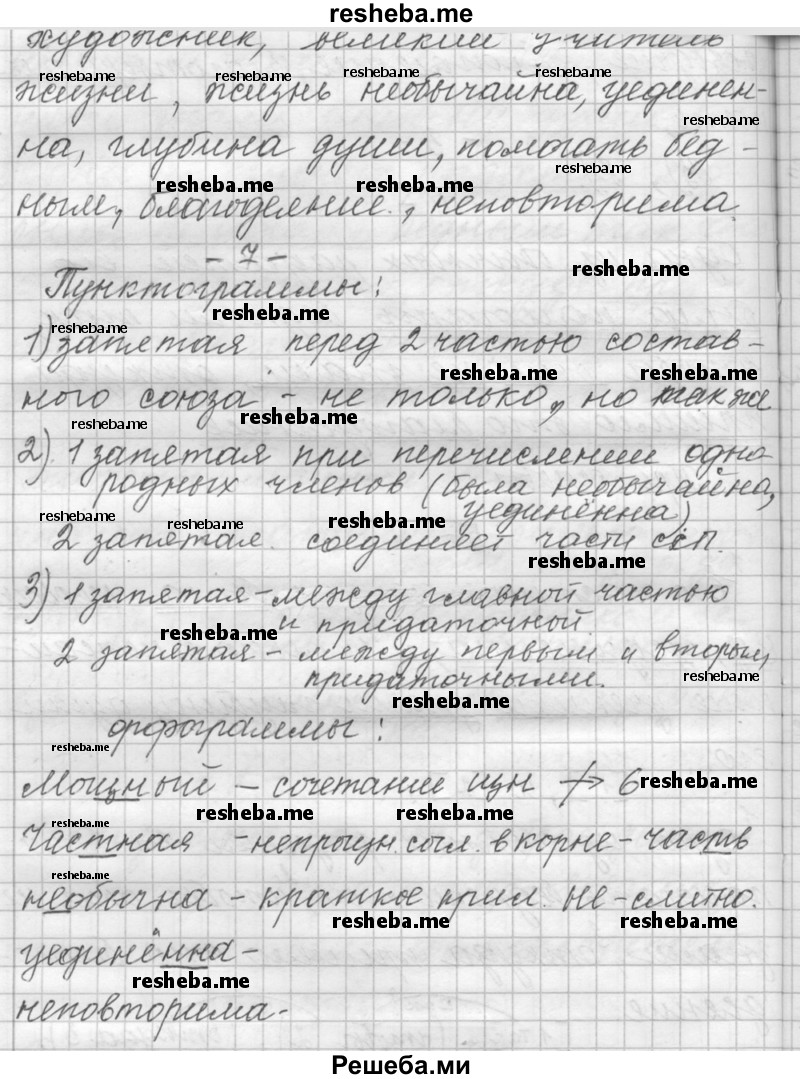 resheba.me
художник, великий учитель
resheba.me resheba.me resheba.me resheba.me
жизни, жизнь необычайна, уединен-
resheba.me
на, глубина души, помогать бед-
resheba.me resheba.me resheba.me
ным, благодеяние, неповторима
- 7 -
resheba.me
Пунктограммы:
resheba.me
resheba.me
1) запятая перед 2 частью состав-
resheba.me resheba.me
ного союза - не только, но также
resheba.me resheba.me
2) 1 запятая при перечислении одно
родных членов (была необычайна,
уединённа)
resheba.me resheba.me resheba.me
2 запятая соединяет части ССП.
resheba.me
3) 1 запятая - между главной частью
и придаточной.
resheba.me
2 запятая - между первым и вторым
придаточными.
resheba.me
resheba.me
орфограммы:
resheba.me
Мощный - сочетание щн resheba.me
resheba.me resheba.me
resheba.me
Частная - непроизн. согл. в корне - часть
resheba.me
необычна - краткое прил. не - слитно.
resheba.me resheba.me
уединённа -
resheba.me
неповторима -
Решеба.ми